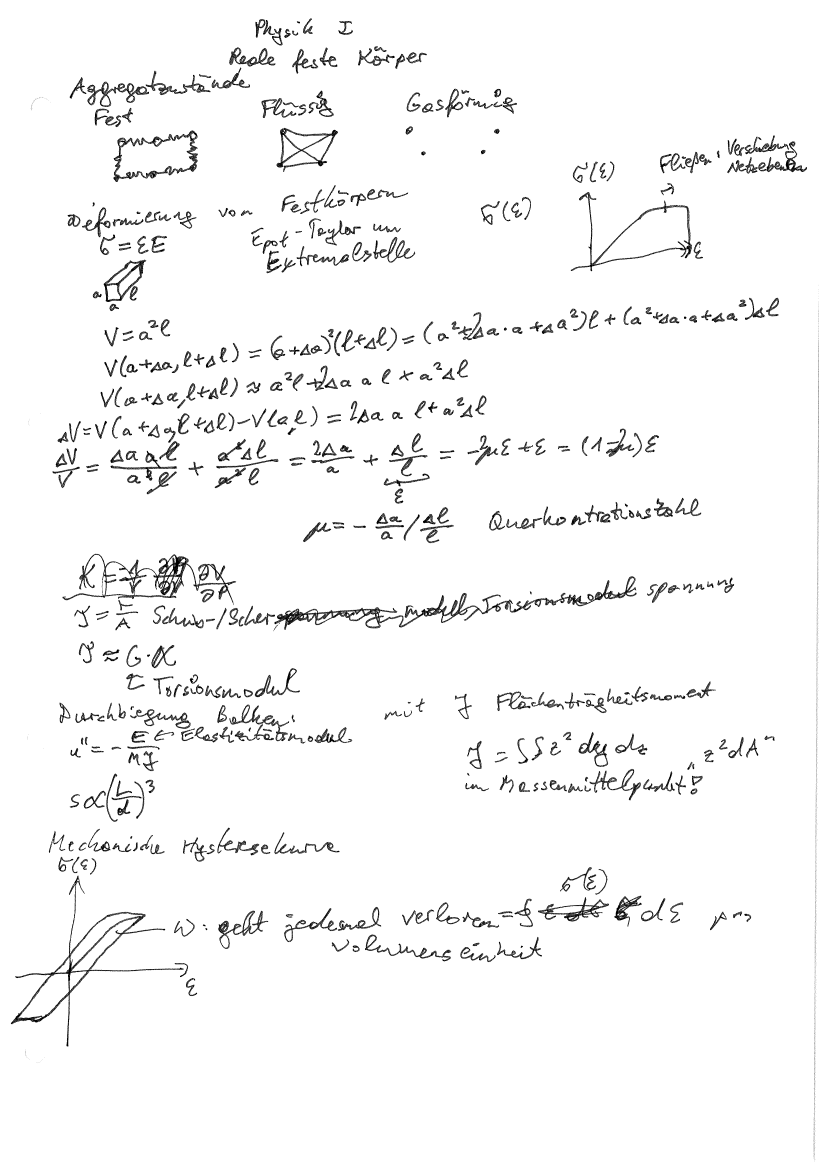 Physik I
Reale feste Körper
Aggregatzustände
Fest Flüssig Gasförmig
σ(ε) Fließen: Verschiebung Netzebenen
Deformierung von Festkörpern σ(ε)
σ = εE Epot-Taylor um
Extremalstelle ε
a l
a
V = a²l
V(a+Δa, l+Δl) = (a+Δa)²(l+Δl) = (a²+2Δa·a+Δa²)l + (a²+Δa·a+Δa²)Δl
V(a+Δa, l+Δl) ≈ a²l+2Δa a l + a²Δl
ΔV = V(a+Δa, l+Δl) - V(a,l) = 2Δa a l + a²Δl
ΔV/V = Δa a l/a² l + a²Δl/a² l = 2Δa/a + Δl/l = -2με + ε = (1-2μ)ε
ε
μ = - Δa/a / Δl/l Querkontrationszahl
K = -1/V ∂V/∂P
τ = F/A Schub-/Scher spannung
τ ≈ G·α
Torsionsmodul
Durchbiegung Balken: mit J Flächenträgheitsmoment
u'' = - E/MJ ← Elastizitätsmodul J = ∫∫ z² dy dz "z² dA"
s ∝ (L/d)³ im Massenmittelpunkt!
Mechanische Hysteresekurve
σ(ε)
W: geht jedesmal verloren = ∮ σ(ε) dε pro
Volumenseinheit
ε